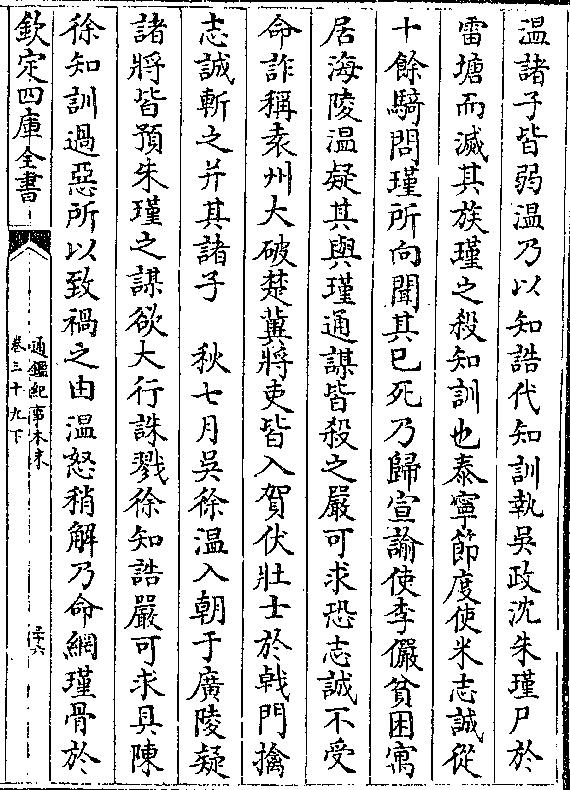 温諸子皆弱温乃以知誥代知訓執吳政沈朱瑾尸於
雷塘而滅其族瑾之殺知訓也泰寧節度使米志誠從
十餘騎問瑾所向聞其已死乃歸宣諭使李儼貧困寓
居海陵温疑其與瑾通謀皆殺之嚴可求恐志誠不受
命詐稱袁州大破楚兾將吏皆入賀伏壯士於戟門擒
志誠斬之并其諸子　秋七月吳徐温入朝于廣陵疑
諸將皆預朱瑾之謀欲大行誅戮徐知誥嚴可求具陳
徐知訓過惡所以致禍之由温怒稍解乃命網瑾骨於
欽定四庫全書
通鑑紀事本末
卷三十九下